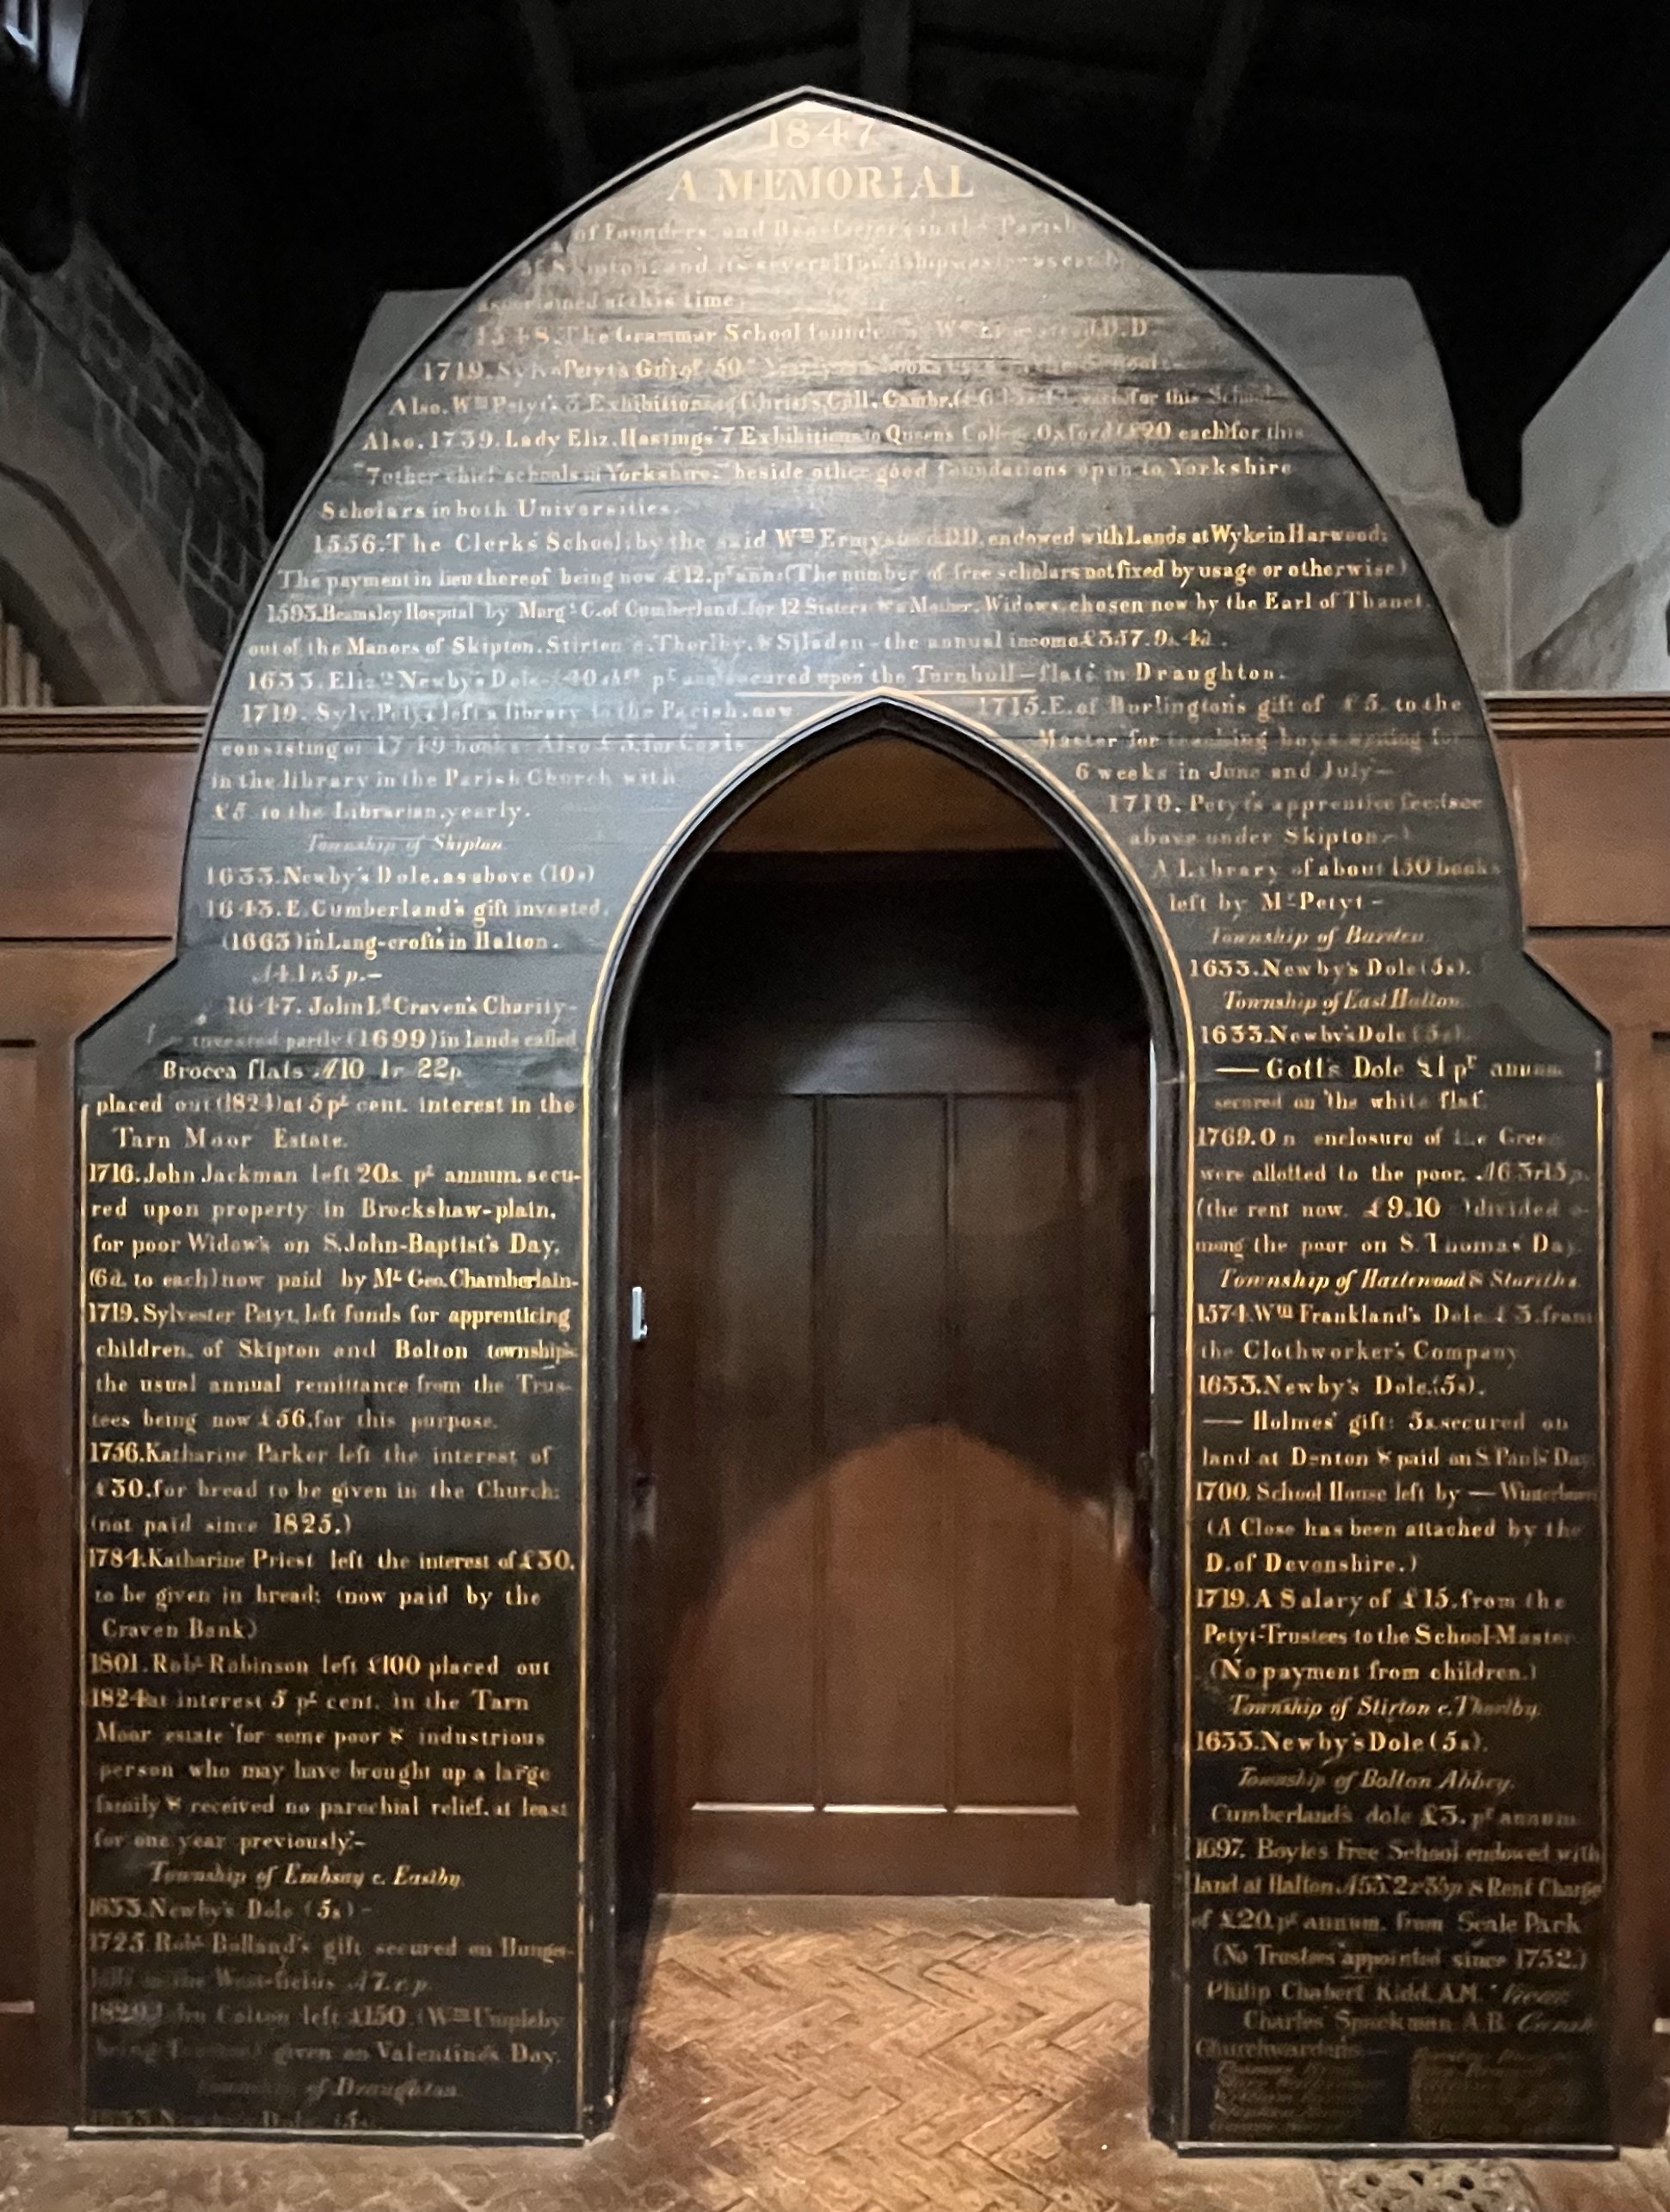 1847
A MEMORIAL
of Founders and Benefactors in the Parish
of Skipton, and its several Townships as far as can be
ascertained at this time
1548. The Grammar School founded Wm D.D.
1719. Sylvr Petyt's Gift of 50 books
Also. Wm Petyt's Exhibitions to Christ's Coll. Cambr. for this School
Also. 1739. Lady Eliz. Hastings' 7 Exhibitions to Queens College Oxford (£20 each) for this
"7 other chief schools in Yorkshire:" beside other good foundations open to Yorkshire
Scholars in both Universities.
1556. The Clerks School; by the said Wm Ermysted DD. endowed with Lands at Wyke in Harwood;
The payment in lieu thereof being now £12. pr ann: (The number of free scholars not fixed by usage or otherwise)
1593. Beamsley Hospital by Margt C. of Cumberland. for 12 Sisters & a Mother. Widows. chosen now by the Earl of Thanet.
out of the Manors of Skipton. Stirton c. Thorlby. & Silsden – the annual income £357. 9s. 4d.
1633. Elizth Newby's Dole – 40 pr ann secured upon the Turnbull-flats in Draughton.
1719. Sylv. Petyt left a library to the Parish. now
consisting of 1749 books. Also £5. for Coals
in the library in the Parish Church with
£5 to the Librarian. yearly.
Township of Skipton
1633. Newby's Dole. as above (10s)
1643. E. Cumberland's gift invested.
(1663) in Lang-crofts in Halton.
A4.1r.5p. –
1647. John Ld Craven's Charity –
invested partly (1699) in lands called
Brocca flats A10 1r 22p
placed out (1824) at 5 pr cent. interest in the
Tarn Moor Estate.
1716. John Jackman left 20s. pr annum. secu-
red upon property in Brockshaw-plain.
for poor Widow's on S. John-Baptist's Day.
(6d. to each) now paid by Mr Geo. Chamberlain –
1719. Sylvester Petyt. left funds for apprenticing
children. of Skipton and Bolton townships:
the usual annual remittance from the Trus-
tees being now £56. for this purpose.
1756. Katharine Parker left the interest of
£30. for bread to be given in the Church:
(not paid since 1825.)
1784. Katharine Priest left the interest of £30.
to be given in bread; (now paid by the
Craven Bank)
1801. Robt Robinson left £100 placed out
1824 at interest 5 pr cent. in the Tarn
Moor estate for some poor & industrious
person who may have brought up a large
family & received no parochial relief. at least
for one year previously: –
Township of Embsay c. Eastby
1633. Newby's Dole (5s) –
1725. Robt Bolland's gift secured on Hunger-
hills in the West-fields A7. r. p.
1829. John Colton left £150. (Wm Umpleby
being Trustee) given on Valentine's Day.
Township of Draughton
1633. Newby's Dole (5s)
1715. E. of Burlington's gift of £5. to the
Master for teaching boys writing for
6 weeks in June and July –
1719. Petyt's apprentice fee: (see
above under Skipton –)
A Library of about 150 books
left by Mr Petyt –
Township of Barden
1633. Newby's Dole (5s).
Township of East Halton
1633. Newby's Dole (5s).
— Gott's Dole £1 pr annum
secured on the white flat.
1769. On enclosure of the Green
were allotted to the poor. A6 3r 15p.
(the rent now. £9.10 ) divided a-
mong the poor on S. Thomas' Day.
Township of Hazlewood & Storiths.
1574. Wm Frankland's Dole £3. from
the Clothworker's Company
1633. Newby's Dole. (5s).
— Holmes' gift: 3s. secured on
land at Denton & paid on S. Paul's Day
1700. School House left by — Winterburn
(A Close has been attached by the
D. of Devonshire.)
1719. A Salary of £15. from the
Petyt-Trustees to the School-Master
(No payment from children.)
Township of Stirton c. Thorlby.
1633. Newby's Dole (5s).
Township of Bolton Abbey.
Cumberland's dole £3. pr annum
1697. Boyle's Free School endowed with
land at Halton. A55 2r 35p & Rent Charge
of £20. pr annum. from Scale Park
(No Trustees appointed since 1752.)
Philip Chabert Kidd. A.M. Vicar
Charles Spackman A.B. Curate
Churchwardens –